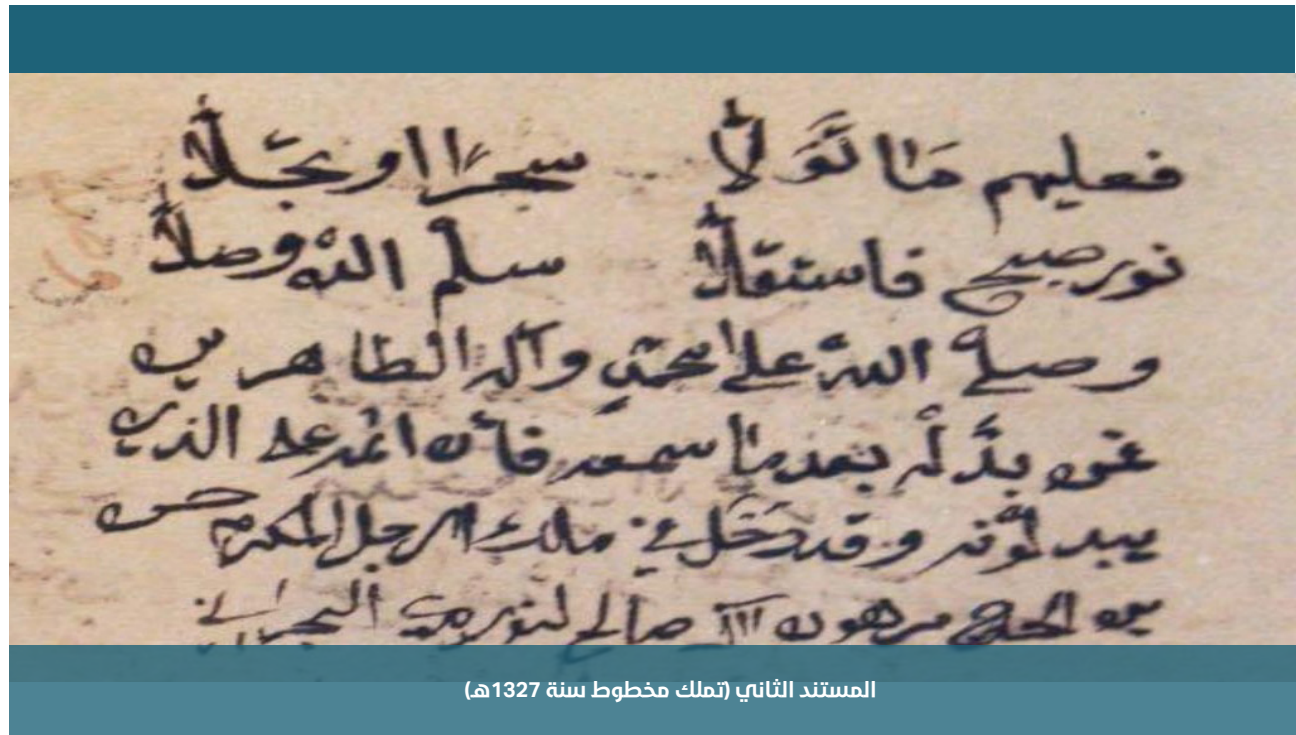 فعليهم ما تَوَلَّا سحرًا او تجَلَّا
نور صبح فاستقلَّا سلّم الله وصلَّا
وصلى الله على محمد وآله الطاهرين
فمن بدّله بعد ما سمعه فإنما اثمه على الذين
يبدلونه وقد دَخَل في ملك الرجل المكرم حسن
بن الحاج مرهون آل صالح التوبي البحراني
المستند الثاني (تملك مخطوط سنة 1327هـ)